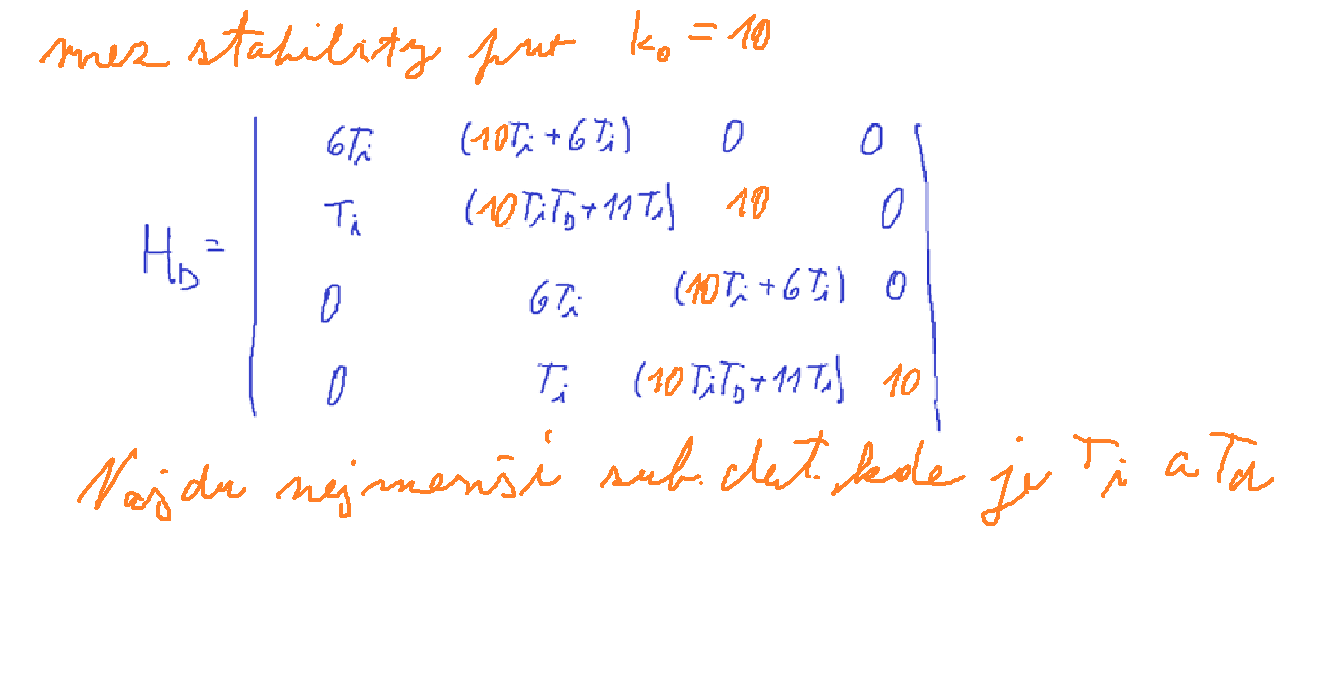 mez stability pro k₀ = 10
6Tᵢ (10Tᵢ + 6Tᵢ) 0 0
Tᵢ (10TᵢT_D + 11Tᵢ) 10 0
H_D =
0 6Tᵢ (10Tᵢ + 6Tᵢ) 0
0 Tᵢ (10TᵢT_D + 11Tᵢ) 10
Najdu nejmenší sub. det. kde je Tᵢ a T_d